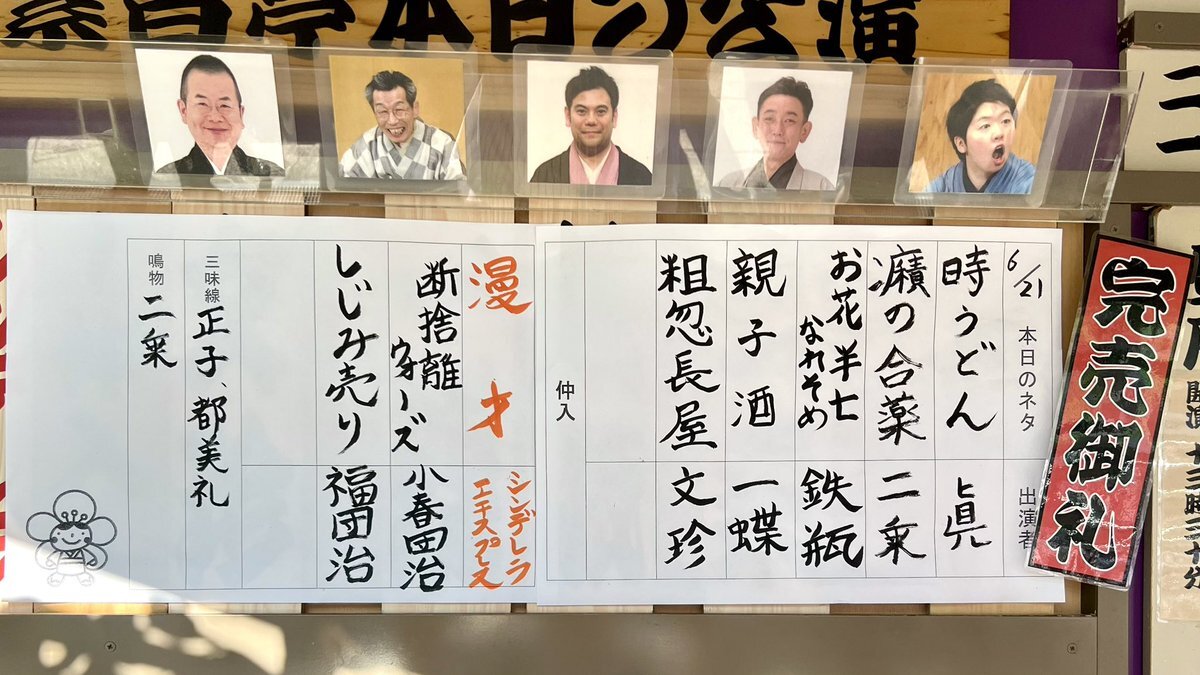 本日の公演
6/21 本日のネタ 出演者
時うどん 眞
癪の合薬 二乗
お花半七なれそめ 鉄瓶
親子酒 一蝶
粗忽長屋 文珍
仲入
漫才 シンデレラエキスプレス
断捨離ウォーズ 小春団治
しじみ売り 福団治
三味線 正子、都美礼
鳴物 二乗
完売御礼